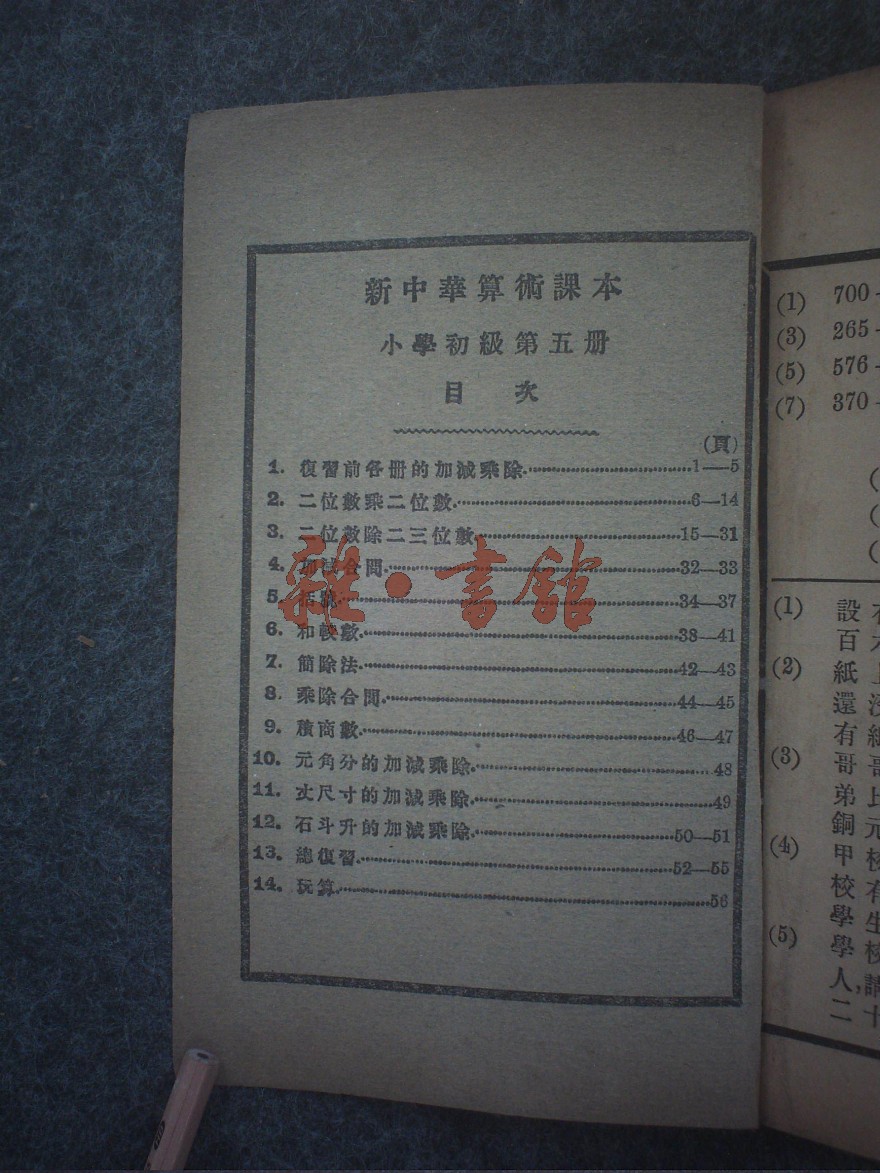 新中華算術課本
小學初級第五册
目 次
(頁)
1. 復習前各册的加減乘除 1—5
2. 二位數乘二位數 6—14
3. 二位數除二三位數 15—31
4. 加減合問 32—33
5. 括號 34—37
6. 和較數 38—41
7. 簡除法 42—43
8. 乘除合問 44—45
9. 積商數 46—47
10. 元角分的加減乘除 48
11. 丈尺寸的加減乘除 49
12. 石斗升的加減乘除 50—51
13. 總復習 52—55
14. 玩算 56
雜·書館
(1) 700
(3) 265
(5) 576
(7) 370
(1) 設
百
(2) 紙
還
有
(3) 哥
弟
銅
(4) 甲
校
學
(5) 學
人,
二十